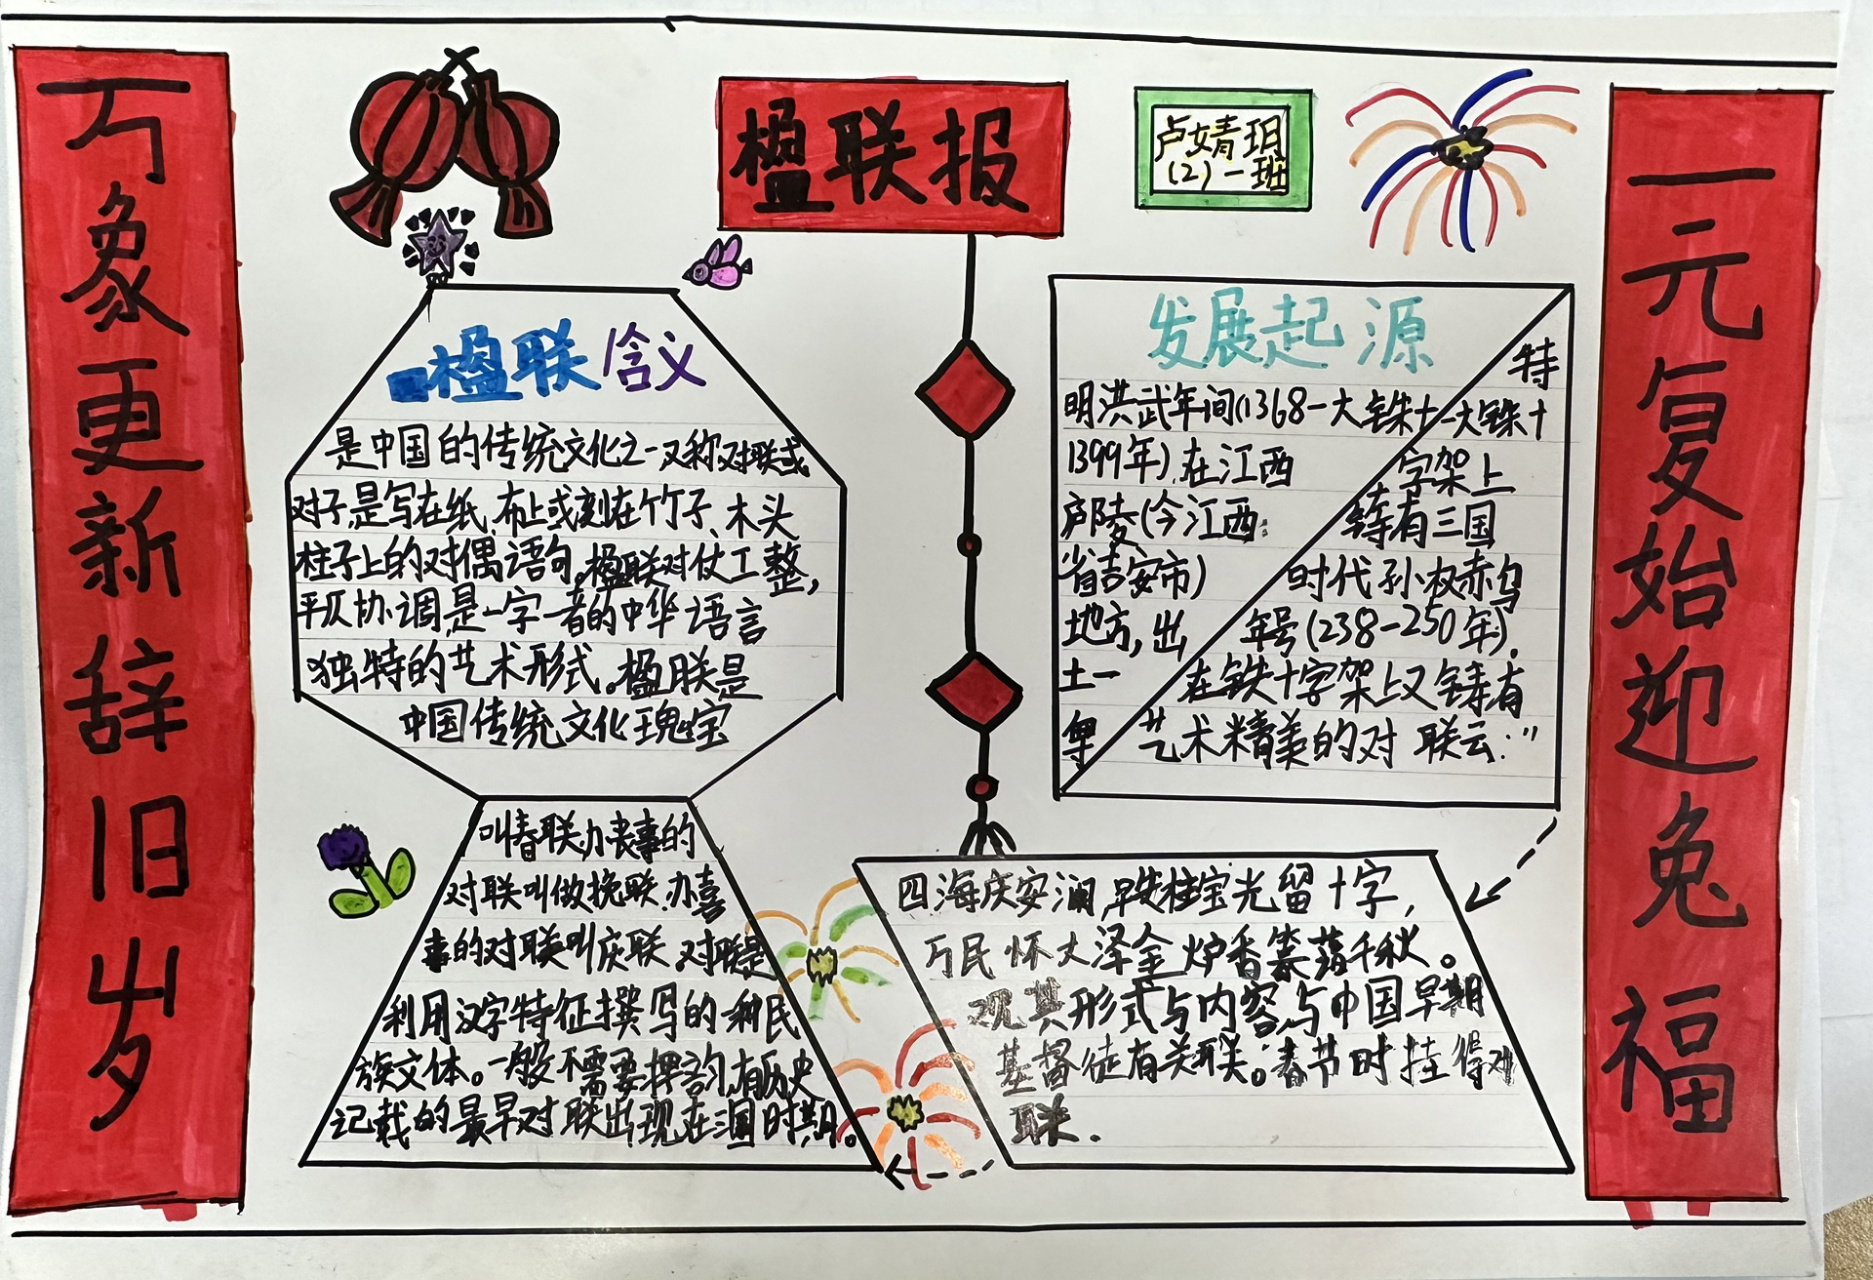 万象更新辞旧岁
楹联报
卢婧玥
(2)一班
一元复始迎兔福
楹联含义
是中国的传统文化之一又称对联或
对子,是写在纸、布上或刻在竹子、木头
柱子上的对偶语句,楹联对仗工整,
平仄协调,是一字一音的中华语言
独特的艺术形式。楹联是
中国传统文化瑰宝
发展起源
明洪武年间(1368-
1399年),在江西
庐陵(今江西
省吉安市)
地方,出
土一
大铁十
特
大铁十
字架上
铸有三国
时代孙权赤乌
年号(238-250年),
在铁十字架上又铸有
艺术精美的对联云:"
四海庆安澜,铁柱宝光留十字,
万民怀大泽金炉香篆蔼千秋。
观其形式与内容,与中国早期
基督徒有关联。春节时挂得对
联.
叫春联,办丧事的
对联叫做挽联,办喜
事的对联叫庆联,对联是
利用汉字特征撰写的一种民
族文体。一般不需要押韵,有历史
记载的最早对联出现在三国时期。